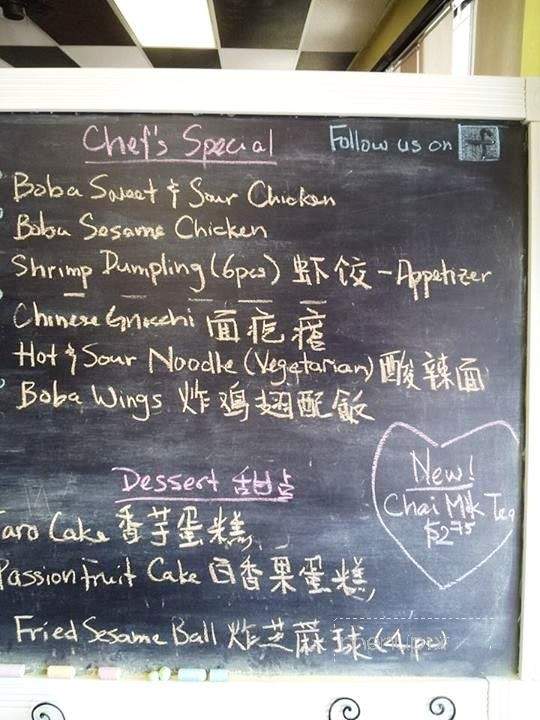 Chef's Special
Follow us on f
Boba Sweet & Sour Chicken
Boba Sesame Chicken
Shrimp Dumpling (6pcs) 虾饺 - Appetizer
Chinese Gnocchi 面疙瘩
Hot & Sour Noodle (Vegetarian) 酸辣面
Boba Wings 炸鸡翅配飯
New!
Chai Milk Tea
$2.75
Dessert 甜点
Taro Cake 香芋蛋糕
Passion Fruit Cake 百香果蛋糕
Fried Sesame Ball 炸芝蔴球 (4